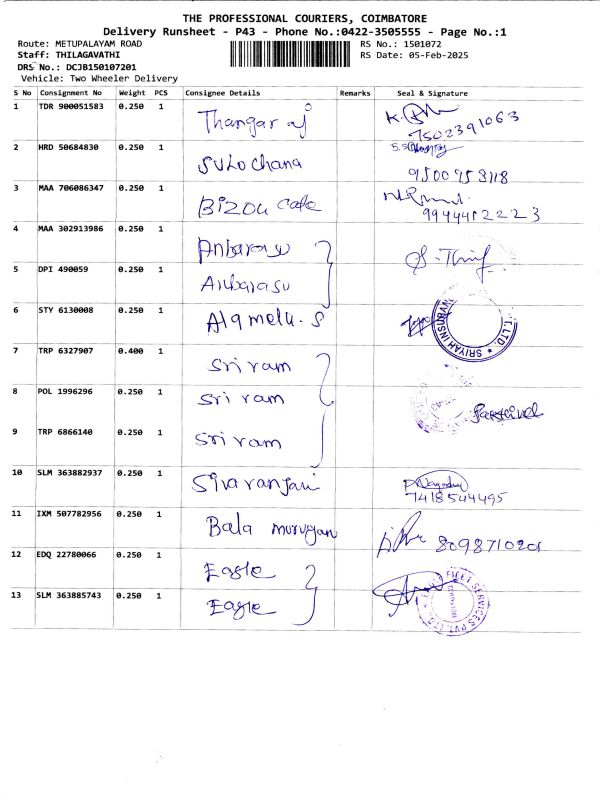 THE PROFESSIONAL COURIERS, COIMBATORE
Delivery Runsheet - P43 - Phone No.:0422-3505555 - Page No.:1
Route: METUPALAYAM ROAD RS No.: 1501072
Staff: THILAGAVATHI RS Date: 05-Feb-2025
DRS No.: DCJB150107201
Vehicle: Two Wheeler Delivery
S No Consignment No Weight PCS Consignee Details Remarks Seal & Signature
1 TDR 900051583 0.250 1 Thangaraj 7502391063
2 HRD 50684830 0.250 1 Sulochana 9500953118
3 MAA 706086347 0.250 1 Bizou cafe 9944412223
4 MAA 302913986 0.250 1 Anbarasu
5 DPI 490059 0.250 1 Anbarasu
6 STY 6130008 0.250 1 Alamelu. S SRIYAH INSURAN
7 TRP 6327907 0.400 1 Sri ram
8 POL 1996296 0.250 1 Sri ram
9 TRP 6866140 0.250 1 Sri ram
10 SLM 363882937 0.250 1 Sivaranjani 7418544495
11 IXM 507782956 0.250 1 Bala murugan 8098710201
12 EDQ 22780066 0.250 1 Eagle
13 SLM 363885743 0.250 1 Eagle FLEET SERVICES PVT. LTD.